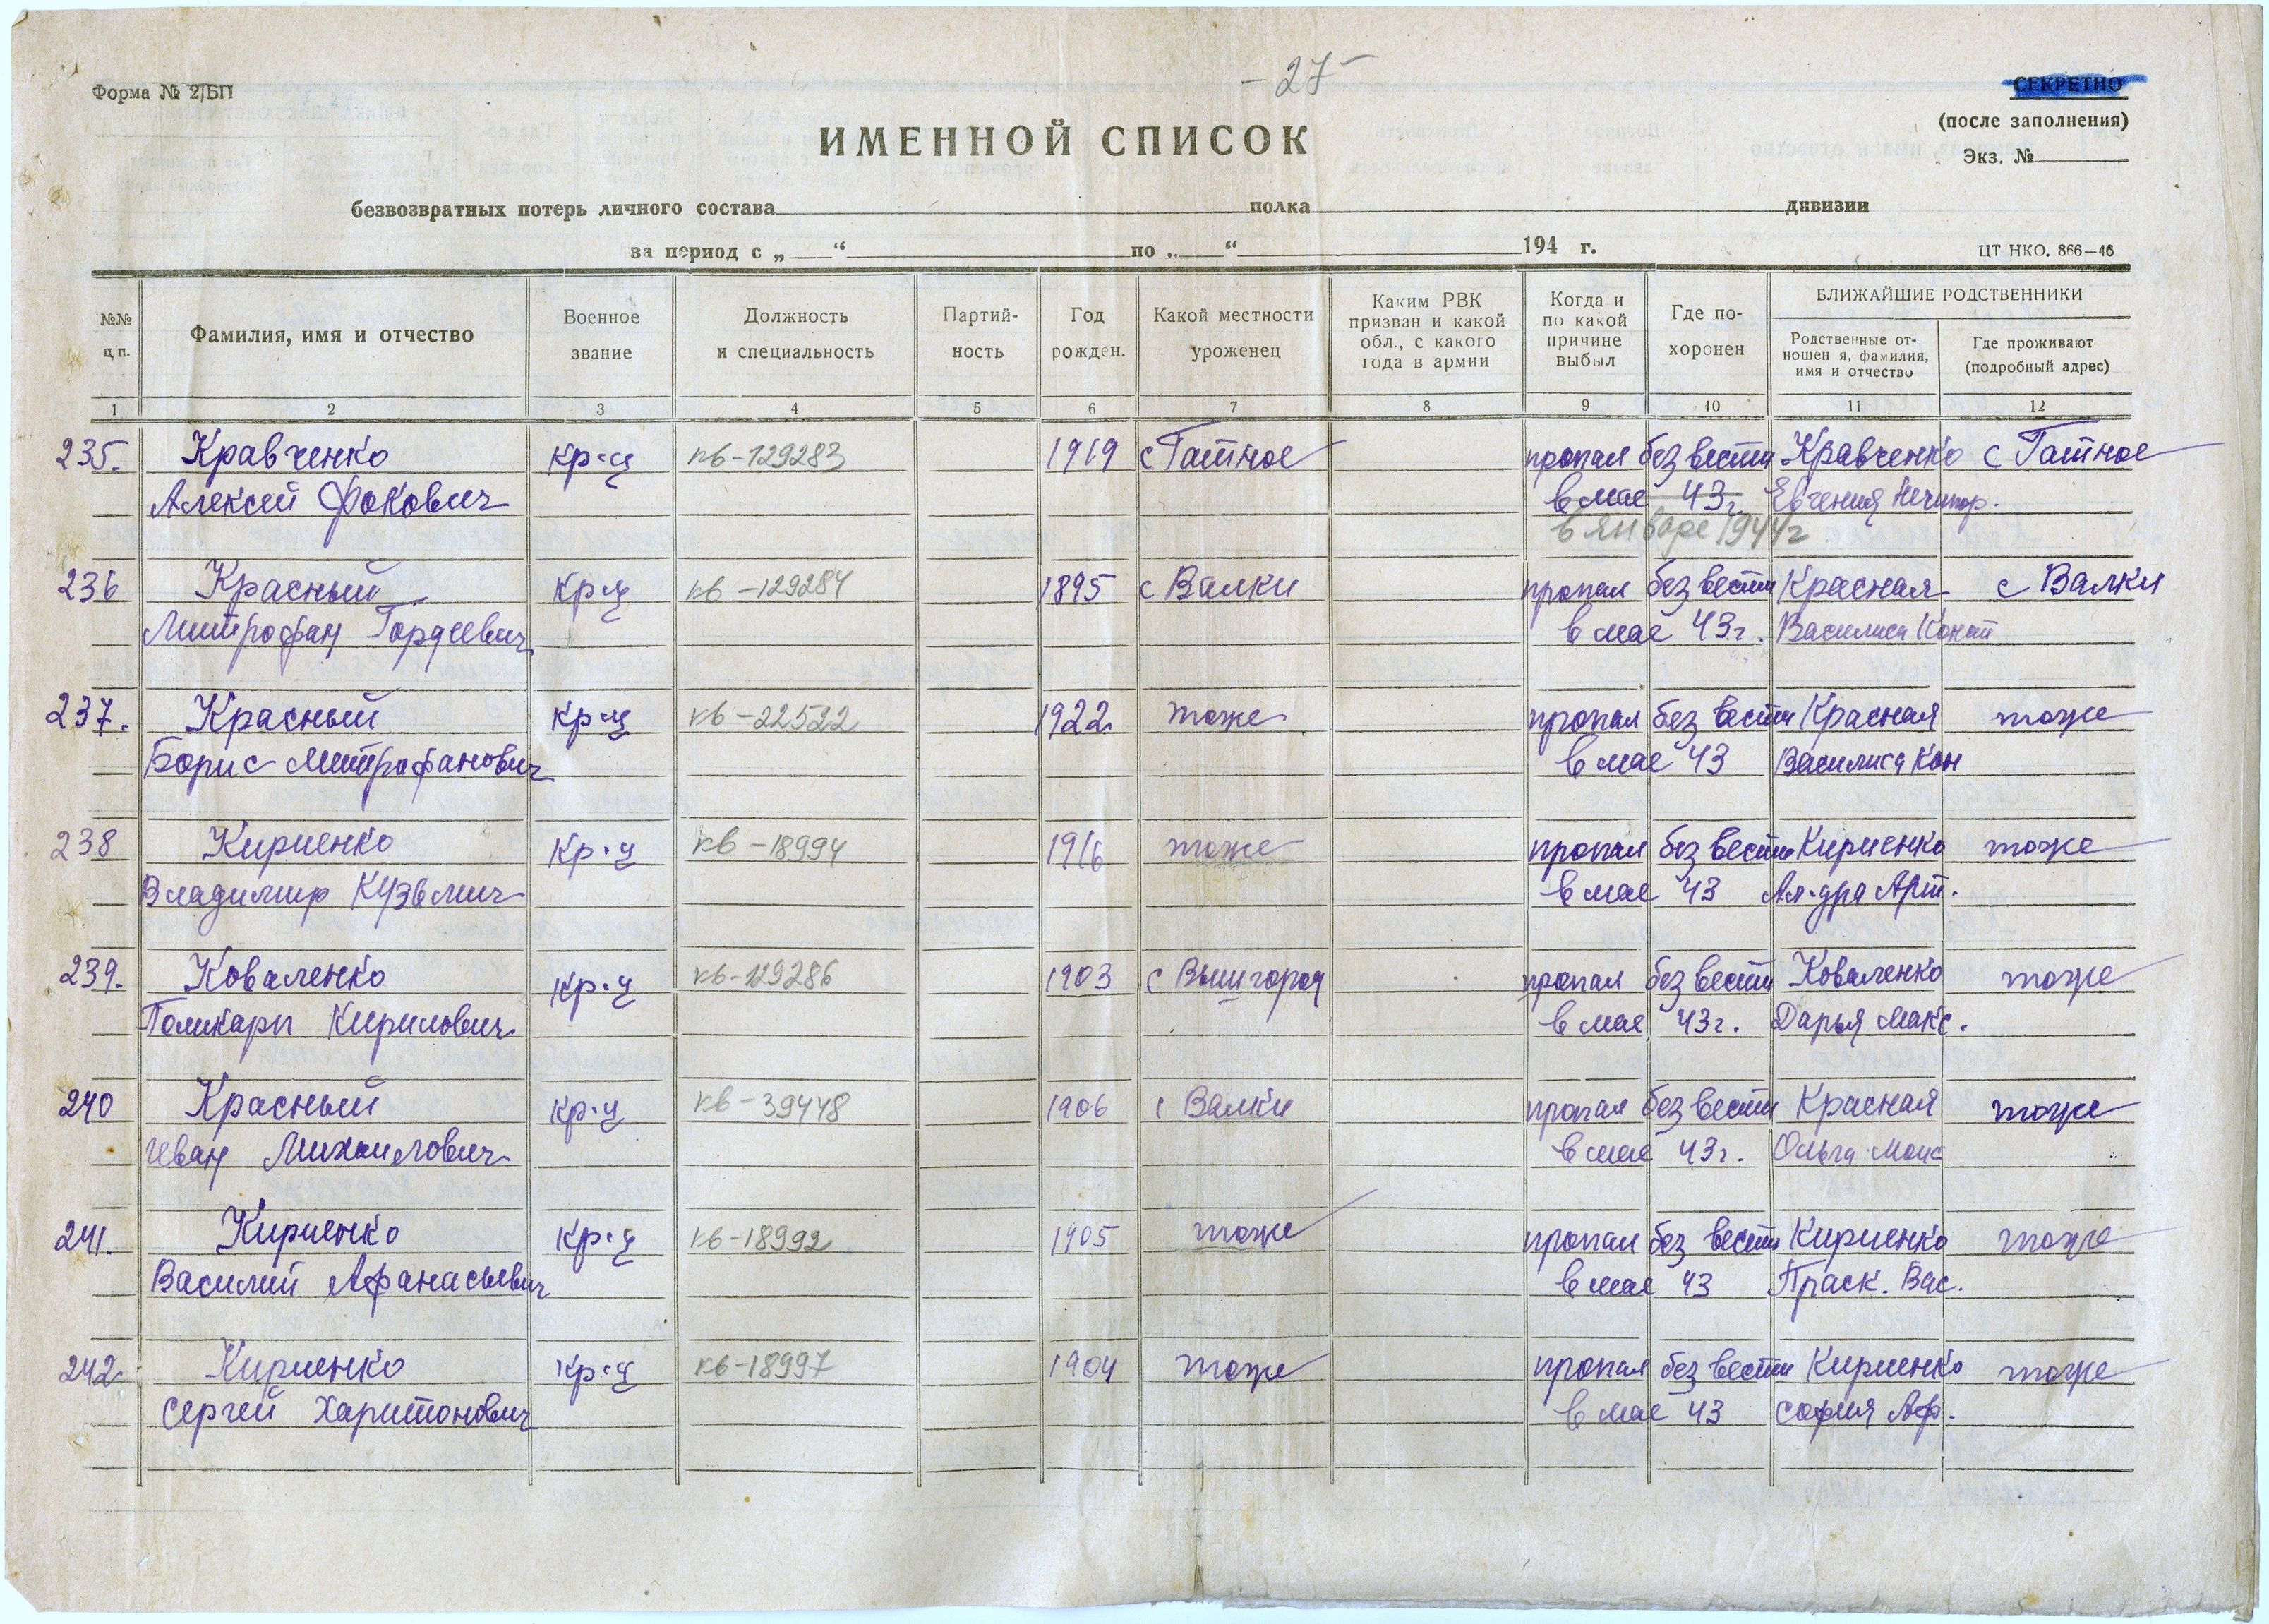 - 27 -
Форма № 2/БП
СЕКРЕТНО
(после заполнения)
Экз. №
ИМЕННОЙ СПИСОК
безвозвратных потерь личного состава полка дивизии
за период с „ “ по „ “ 194 г.
ЦТ НКО. 866—46
№№ ц п.
Фамилия, имя и отчество
Военное звание
Должность и специальность
Партий-
ность
Год рожден.
Какой местности уроженец
Каким РВК призван и какой обл., с какого года в армии
Когда и по какой причине выбыл
Где по-
хоронен
БЛИЖАЙШИЕ РОДСТВЕННИКИ
Родственные от-
ношен я, фамилия, имя и отчество
Где проживают (подробный адрес)
1 2 3 4 5 6 7 8 9 10 11 12
235. Кравченко кр-ц кв-129283 1919 с Гатное пропал без вести Кравченко с Гатное
Алексей Фокович в мае 43г. Евгения Нечипор.
в январе 1944г
236 Красный кр-ц кв-129284 1895 с Валки пропал без вести Красная с Валки
Митрофан Гордеевич в мае 43г. Василиса Конст
237. Красный кр-ц кв-22522 1922 тоже пропал без вести Красная тоже
Борис Митрофанович в мае 43 Василиса Кон
238 Кириенко кр-ц кв-18994 1916 тоже пропал без вести Кириенко тоже
Владимир Кузьмич в мае 43 Ал-дра Арт.
239. Коваленко кр-ц кв-129286 1903 с Вышгород пропал без вести Коваленко тоже
Поликарп Кирилович в мае 43г. Дарья Макс.
240 Красный кр-ц кв-39448 1906 с Валки пропал без вести Красная тоже
Иван Михаилович в мае 43г. Ольга Моис
241. Кириенко кр-ц кв-18992 1905 тоже пропал без вести Кириенко тоже
Василий Афанасьевич в мае 43 Праск. Вас.
242 Кириенко кр-ц кв-18997 1904 тоже пропал без вести Кириенко тоже
Сергей Харитонович в мае 43 София Аф.